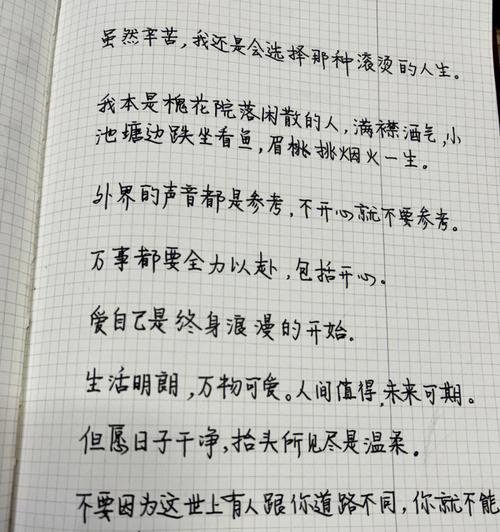 虽然辛苦，我还是会选择那种滚烫的人生。
我本是槐花院落闲散的人，满襟酒气，小
池塘边跌坐看鱼，眉挑挑烟火一生。
外界的声音都是参考，不开心就不要参考。
万事都要全力以赴，包括开心。
爱自己是终身浪漫的开始。
生活明朗，万物可爱。人间值得，未来可期。
但愿日子干净，抬头所见尽是温柔。
不要因为这世上有人跟你道路不同，你就不能